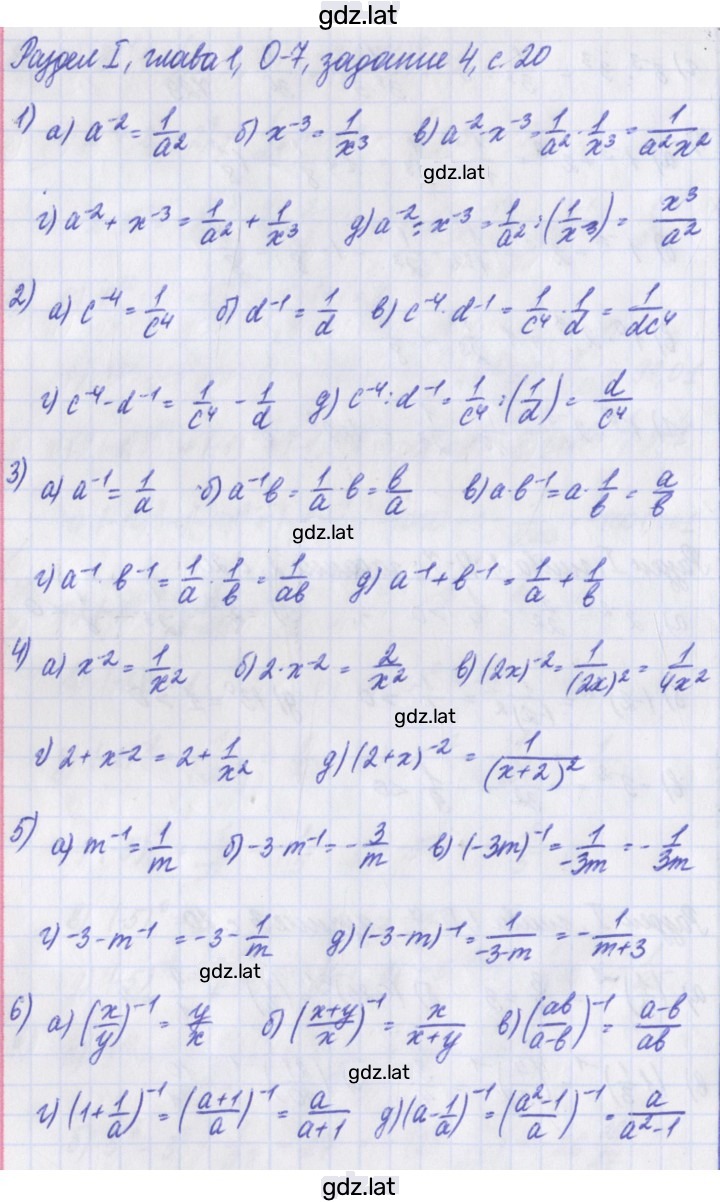 gdz.lat
Раздел I, глава 1, О-7, задание 4, с. 20
1) а) a⁻² = 1/a² б) x⁻³ = 1/x³ в) a⁻²·x⁻³ = 1/a² · 1/x³ = 1/a²x²
gdz.lat
г) a⁻² + x⁻³ = 1/a² + 1/x³ д) a⁻² : x⁻³ = 1/a² : (1/x⁻³) = x³/a²
2) а) c⁻⁴ = 1/c⁴ б) d⁻¹ = 1/d в) c⁻⁴·d⁻¹ = 1/c⁴ · 1/d = 1/dc⁴
г) c⁻⁴ - d⁻¹ = 1/c⁴ - 1/d д) c⁻⁴ : d⁻¹ = 1/c⁴ : (1/d) = d/c⁴
3) а) a⁻¹ = 1/a б) a⁻¹b = 1/a · b = b/a в) a·b⁻¹ = a · 1/b = a/b
gdz.lat
г) a⁻¹·b⁻¹ = 1/a · 1/b = 1/ab д) a⁻¹ + b⁻¹ = 1/a + 1/b
4) а) x⁻² = 1/x² б) 2·x⁻² = 2/x² в) (2x)⁻² = 1/(2x)² = 1/4x²
gdz.lat
г) 2 + x⁻² = 2 + 1/x² д) (2+x)⁻² = 1/(x+2)²
5) а) m⁻¹ = 1/m б) -3·m⁻¹ = -3/m в) (-3m)⁻¹ = 1/-3m = -1/3m
г) -3 - m⁻¹ = -3 - 1/m д) (-3-m)⁻¹ = 1/-3-m = -1/m+3
gdz.lat
6) а) (x/y)⁻¹ = y/x б) (x+y/x)⁻¹ = x/x+y в) (ab/a-b)⁻¹ = a-b/ab
gdz.lat
г) (1+1/a)⁻¹ = (a+1/a)⁻¹ = a/a+1 д) (a-1/a)⁻¹ = (a²-1/a)⁻¹ = a/a²-1
gdz.lat